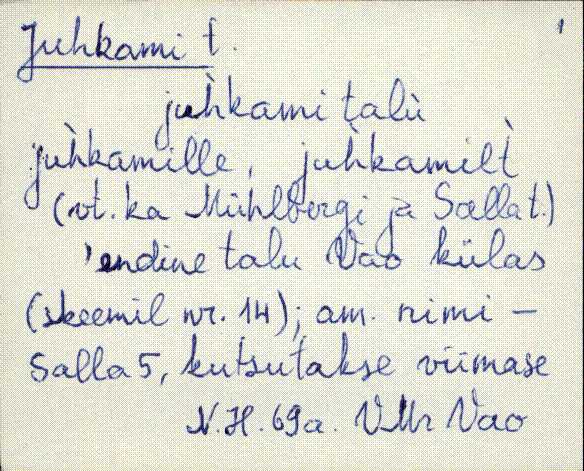 Juhkami t. 1
juh̀kami talù
juh̀kamille, juh̀kamilt̀
(vt. ka Mühlbergi ja Salla t.)
'endine talu Vao külas
(skeemil nr. 14); am. nimi –
Salla 5, kutsutakse viimase
N.H. 69a. VMr Vao